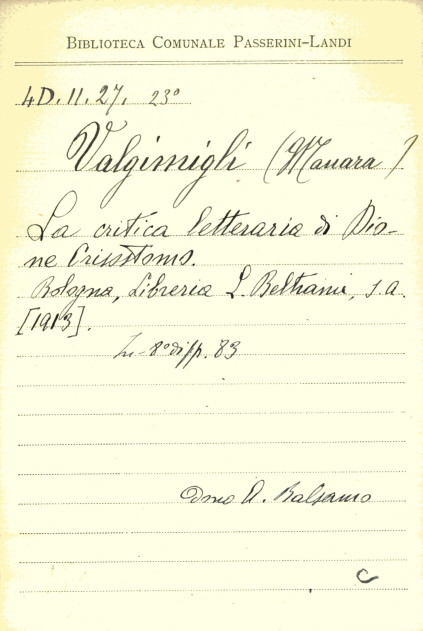 BIBLIOTECA COMUNALE PASSERINI-LANDI
4D.II.27. 23°
Valgimigli (Manara)
La critica letteraria di Dio-
ne Crisostomo.
Bologna, Libreria L. Beltrami, s.a.
[1913].
In-8° di pp. 83
dono A. Balsamo
C